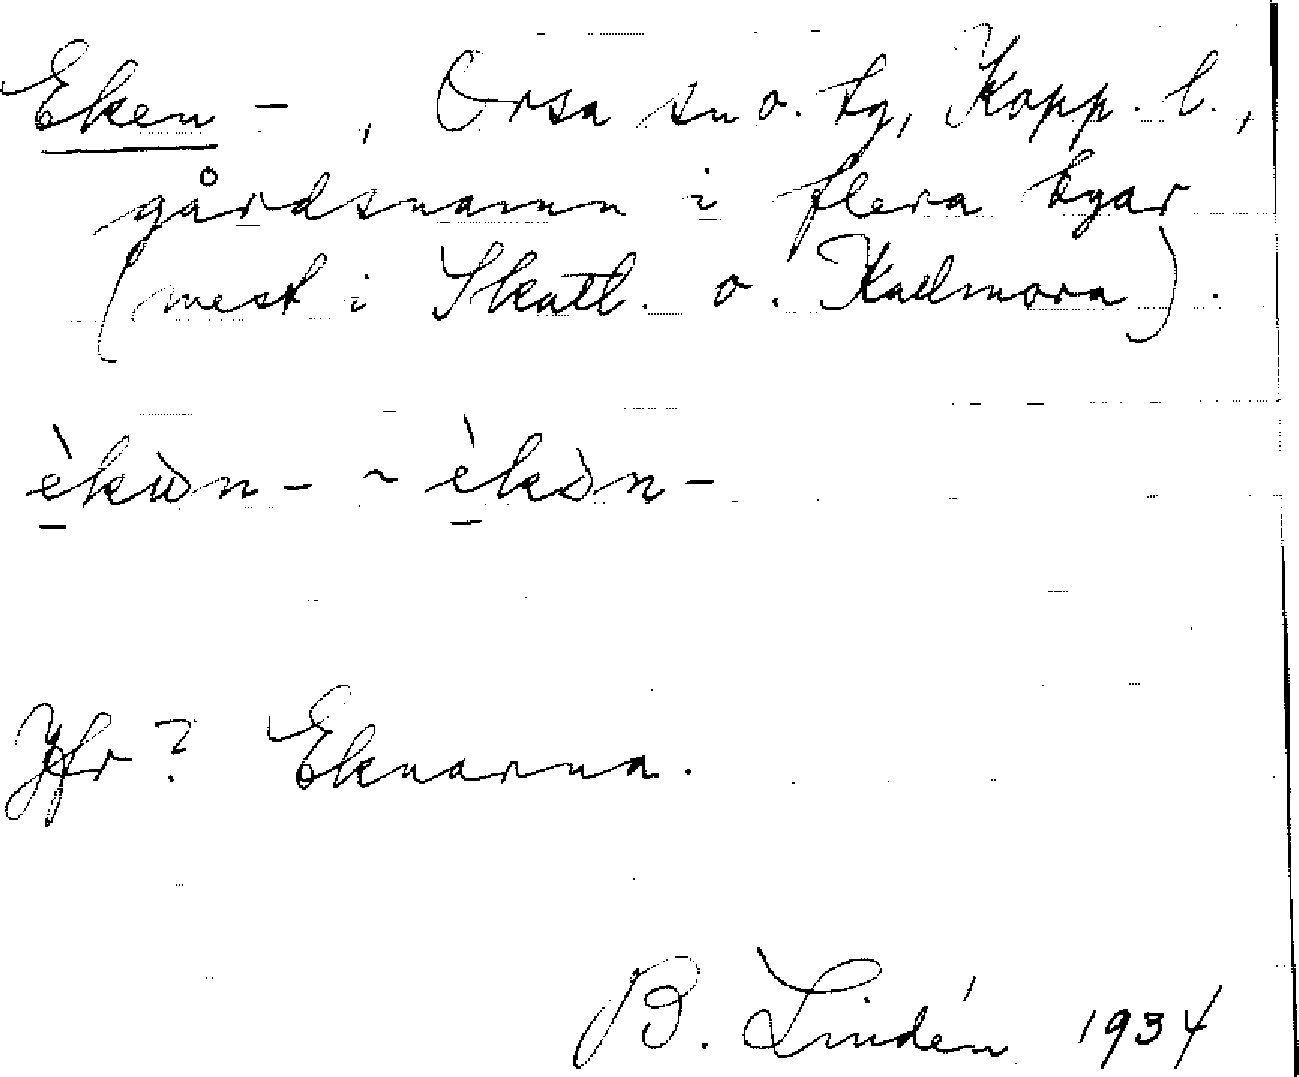 Eken - , Orsa sn o. tg, Kopp. l.,
gårdsnamn i flera byar
(mest i Skattl. o. Kallmora).
èkùn- ~ èkàn-
Jfr? Eknarna.
B. Lindén 1934